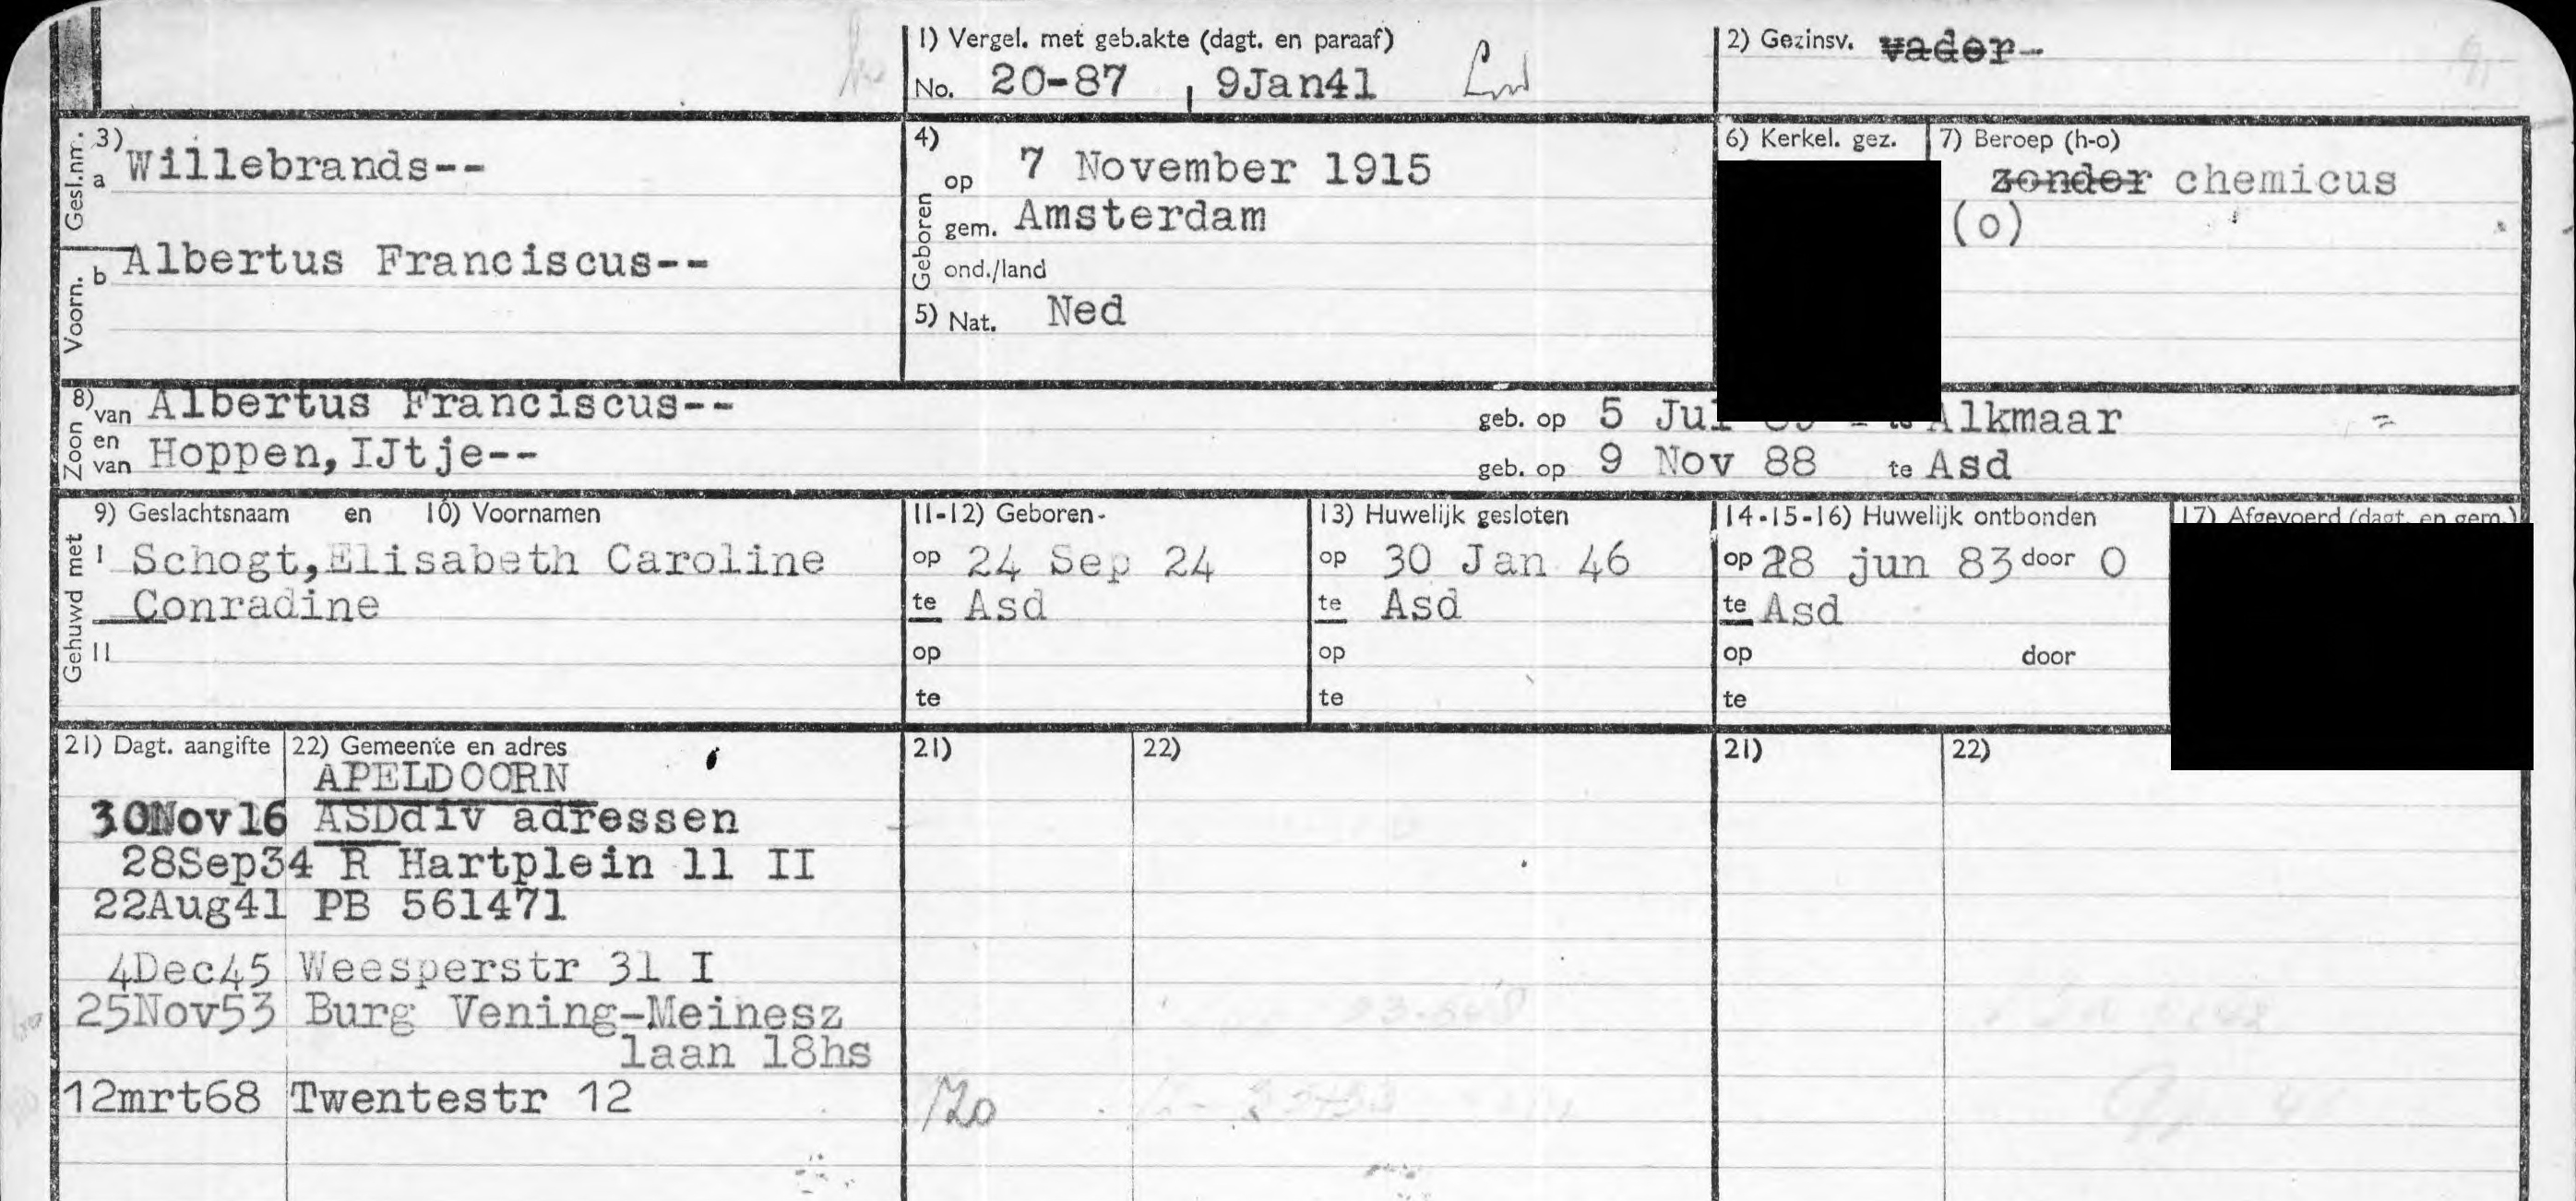 1) Vergel. met geb.akte (dagt. en paraaf)
No. 20-87 9Jan41
2) Gezinsv. vader-
Gesl.nm. 3) a Willebrands--
Voorn. b Albertus Franciscus--
4) Geboren op 7 November 1915
gem. Amsterdam
ond./land
5) Nat. Ned
6) Kerkel. gez.
7) Beroep (h-o)
zonder chemicus
(o)
8) Zoon van Albertus Franciscus-- geb. op 5 Jul te Alkmaar
en van Hoppen,IJtje-- geb. op 9 Nov 88 te Asd
Gehuwd met
9) Geslachtsnaam en 10) Voornamen
I Schogt,Elisabeth Caroline
Conradine
II
11-12) Geboren-
op 24 Sep 24
te Asd
op
te
13) Huwelijk gesloten
op 30 Jan 46
te Asd
op
te
14-15-16) Huwelijk ontbonden
op 28 jun 83 door O
te Asd
op door
te
17) Afgevoerd (dagt. en gem.)
21) Dagt. aangifte 22) Gemeente en adres 21) 22) 21) 22)
APELDOORN
30Nov16 ASDdiv adressen
28Sep34 R Hartplein 11 II
22Aug41 PB 561471
4Dec45 Weesperstr 31 I
25Nov53 Burg Vening-Meinesz
laan 18hs
12mrt68 Twentestr 12